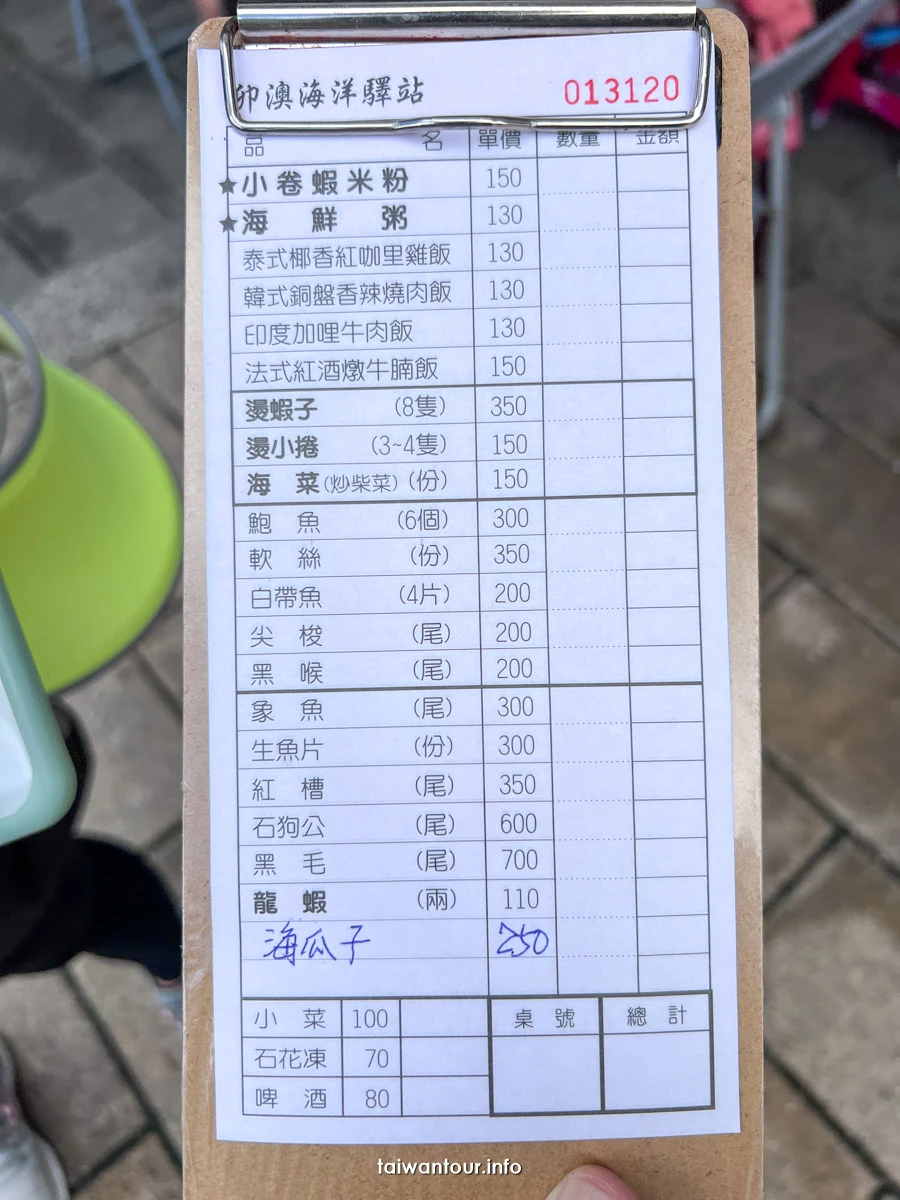 卯澳海洋驛站 013120
品名 單價 數量 金額
★小卷蝦米粉 150
★海鮮粥 130
泰式椰香紅咖里雞飯 130
韓式銅盤香辣燒肉飯 130
印度加哩牛肉飯 130
法式紅酒燉牛腩飯 150
燙蝦子 (8隻) 350
燙小捲 (3~4隻) 150
海菜(炒柴菜) (份) 150
鮑魚 (6個) 300
軟絲 (份) 350
白帶魚 (4片) 200
尖梭 (尾) 200
黑喉 (尾) 200
象魚 (尾) 300
生魚片 (份) 300
紅槽 (尾) 350
石狗公 (尾) 600
黑毛 (尾) 700
龍蝦 (兩) 110
海瓜子 250
小菜 100 桌號 總計
石花凍 70
啤酒 80
taiwantour.info